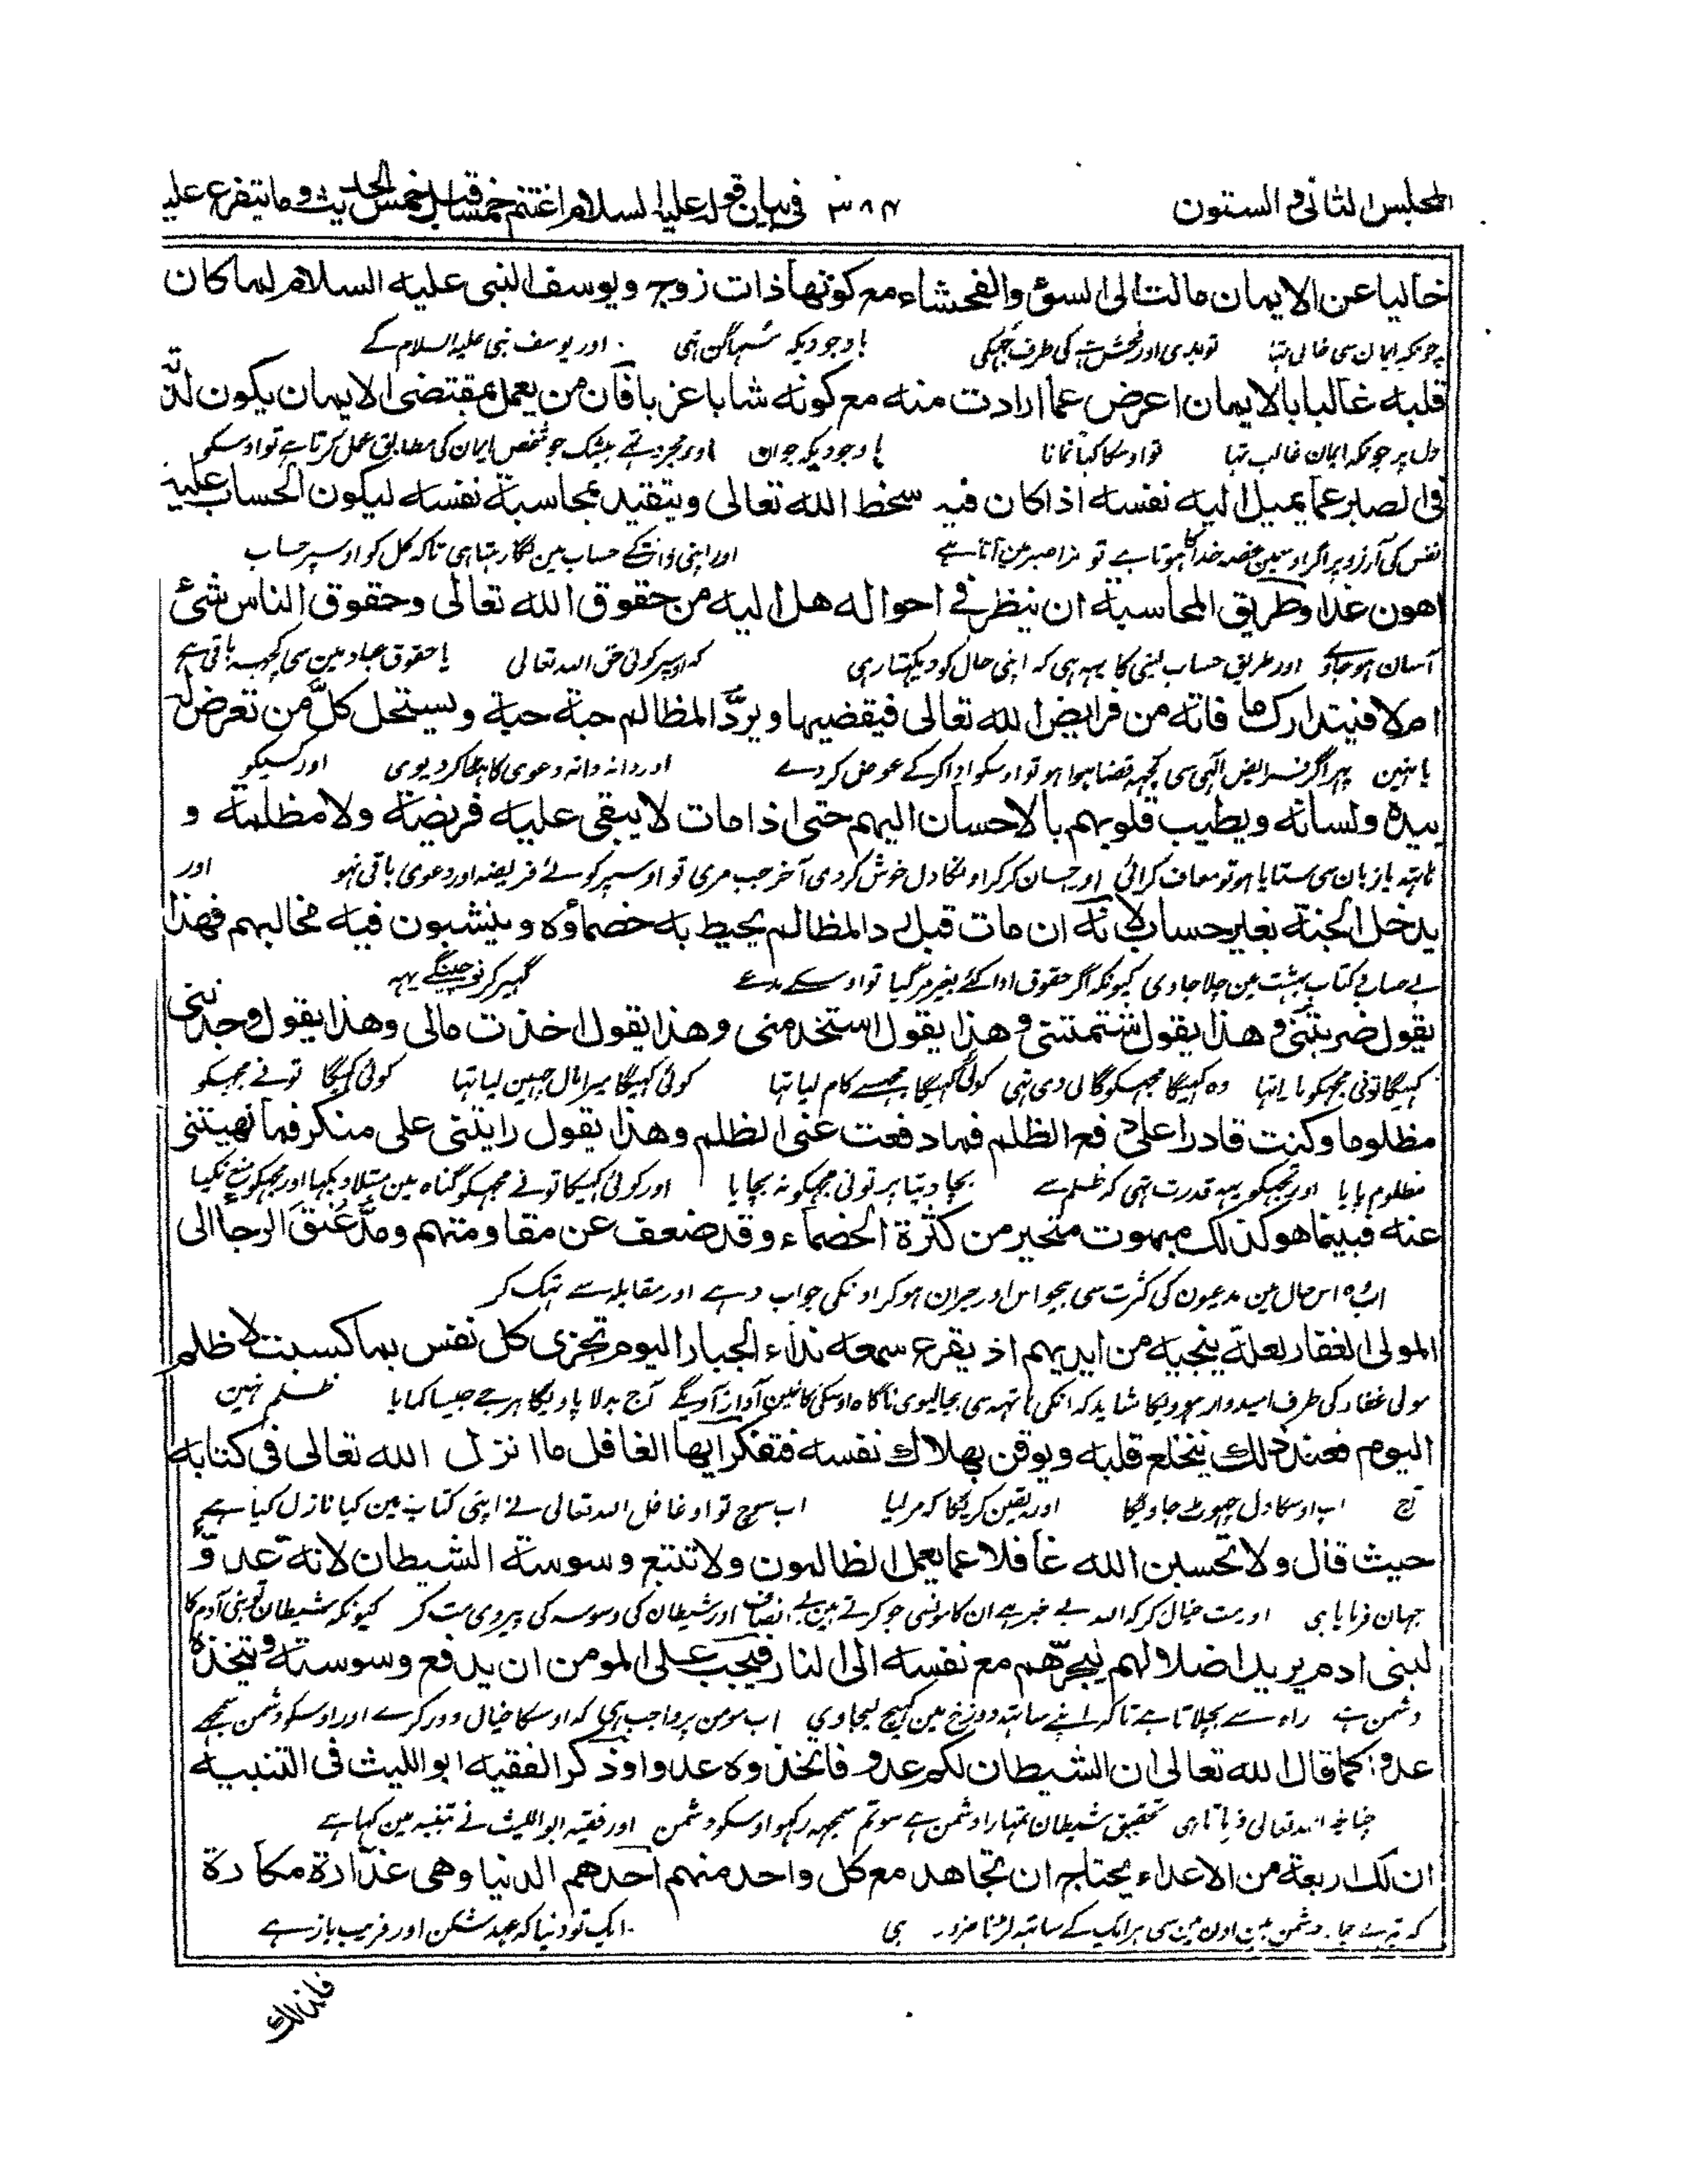 المجلس الثانی و الستون ۳۸۴ فی بیان قوله علیه السلام اغتنم خمسا قبل خمس الحدیث وما یتفرع علیه
خالیا عن الایمان مالت الی السوٓء والفحشاء مع کونها ذات زوج ویوسف النبی علیه السلام لما کان
چونکہ ایمان سی خالی تہا تو بدی اور فحش کی طرف جہکی باوجودیکہ سہاگن تہی اور یوسف نبی علیہ السلام کے
قلبه غالبا بالایمان اعرض عما ارادت منه مع کونه شابا عزبا فان من یعمل بمقتضی الایمان یکون لذته
دل پر چونکہ ایمان غالب تہا تو اوسکا کہنا نمانا باوجودیکہ جوان اور مجرد تہے بیشک جو شخص ایمان کی مطابق عمل کرتا ہے تو اوسکی
فی الصبر عما یمیل الیه نفسه اذا کان فیه سخط الله تعالی ویتقید بمحاسبة نفسه لیکون الحساب علیه
نفس کی آرزو پر اگر اوسمین غصہ خدا کا ہوتا ہے تو مزا صبر مین آتا ہے اور اپنی ذات کے حساب مین لگا رہتا ہی تاکہ کل کو اوسپر حساب
اهون غدا وطریق المحاسبة ان ینظر فی احواله هل الیه من حقوق الله تعالی وحقوق الناس شئ
آسان ہو جاوے اور طریق حساب لینی کا یہہ ہی کہ اپنی حال کو دیکہتا رہی کہ اوسپر کوئی حق اللہ تعالی یا حقوق عباد مین سی کچہہ باقی ہے
ام لا فیتدارک ما فاته من فرایض الله تعالی فیقضیها ویردّ المظالم حبة حبة ویستحل کلّ من تعرض له
یا نہین پہر اگر فرایض الٓہی سی کچہہ قضا ہوا ہو تو اوسکو ادا کرکے عوض کردے اور دانہ دانہ دعوی کا ادا کردیوی اور کسیکو
بیده ولسانه ویطیب قلوبهم بالاحسان الیهم حتی اذا مات لا یبقی علیه فریضة ولا مظلمة و
ہاتہہ یا زبان سی ستایا ہو تو معاف کرائی اور احسان کرکر اونکا دل خوش کردی آخر جب مری تو اوسپر کوئے فریضہ اور دعوی باقی نہو اور
یدخل الجنة بغیر حساب لانه ان مات قبل رد المظالم یحیط به خصماؤه وینشبون فیه مخالبهم فهذا
بے حساب کتاب بہشت مین چلا جاوی کیونکہ اگر حقوق ادا کئے بغیر مرگیا تو اوسکے مدعے گہیر کر نوچینگے یہہ
یقول ضربتنی وهذا یقول شتمتنی وهذا یقول استخدمنی وهذا یقول اخذت مالی وهذا یقول وجدتنی
کہیگا تونی مجہکو مارا تہا وہ کہیگا مجہکو گالی دی تہی کوئی کہیگا مجہسے کام لیا تہا کوئی کہیگا میرا مال چہین لیا تہا کوئی کہیگا تونے مجہکو
مظلوما وکنت قادرا علی دفع الظلم فما دفعت عنی الظلم وهذا یقول رایتنی علی منکر فما نهیتنی
مظلوم پایا اور تجہکو یہہ قدرت تہی کہ ظلم سے بچا دیتا پر تونی مجہکو نہ بچایا اور کوئی کہیگا تونے مجہکو گناہ مین مبتلا دیکہا اور مجہکو منع نکیا
عنه فبینما هو کذلک مبهوت متحیر من کثرة الخصماء وقد ضعف عن مقاومتهم ومدّ عنق الرجا الی
اس حال مین مدعیون کی کثرت سی بیحواس اور حیران ہوکر اونکی جواب دہے اور مقابلہ سے تہک کر
المولی الغفار لعله ینجیه من ایدیهم اذ یقرع سمعه نداء الجبار الیوم تجزی کل نفس بما کسبت لا ظلم
مولی غفار کی طرف امیدوار ہوویگا شاید کہ انکی ہاتہہ سی بچالیوی ناگاہ اوسکی کانمین آواز آویگے آج بدلا پاویگا ہر جے جیسا کمایا ظلم نہین
الیوم فعند ذلک ینخلع قلبه ویوقن بهلاک نفسه فتفکر ایها الغافل ما انزل الله تعالی فی کتابه
آج اب اوسکا دل چہوٹ جاویگا اور یقین کریگا کہ مرلیا اب سوچ تو او غافل اللہ تعالی نے اپنی کتاب مین کیا نازل کیا ہے
حیث قال ولا تحسبن الله غافلا عما یعمل الظالمون ولا تتبع وسوسة الشیطان لانه عدوّ
جہان فرمایا ہی اور مت خیال کر کہ اللہ بے خبر ہے ان کامونسی جو کرتے ہین بے انصاف اور شیطان کی وسوسہ کی پیروی مت کر کیونکہ شیطان تو بنی آدم کا
لبنی ادم یرید اضلالهم لیجرّهم مع نفسه الی النار فیجب علی المومن ان یدفع وسوسته ویتخذه
دشمن ہے راہ سے بچلاتا ہے تاکہ اپنے ساتہہ دوزخ مین کہینچ لیجاوی اب مومن پر واجب ہی کہ اوسکا خیال دور کرے اور اوسکو دشمن سمجہے
عدوا کما قال الله تعالی ان الشیطان لکم عدو فاتخذوه عدوا وذکر الفقیه ابو اللیث فی التنبیه
چنانچہ اللہ تعالی فرماتا ہی تحقیق شیطان تمہارا دشمن ہے سو تم سمجہہ رکہو اوسکو دشمن اور فقیہ ابو اللیث نے تنبیہ مین کہا ہے
ان لک اربعة من الاعداء یحتاج ان تجاهد مع کل واحد منهم احدهم الدنیا وهی غدّارة مکارة
کہ تیرے چار دشمن ہین اون مین سی ہر ایک کے ساتہہ لڑنا ضرور ہی ایک تو دنیا کہ عہد شکن اور فریب باز ہے